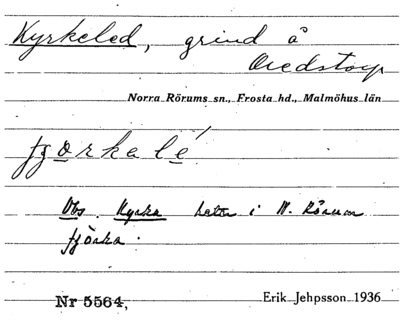 Kyrkeled, grind å
Oredstorp
Norra Rörums sn., Frosta hd., Malmöhus län
fjörkalé
Obs. Kyrka heter i N. Rörum
fjörka.
Nr 5564, Erik Jehpsson 1936